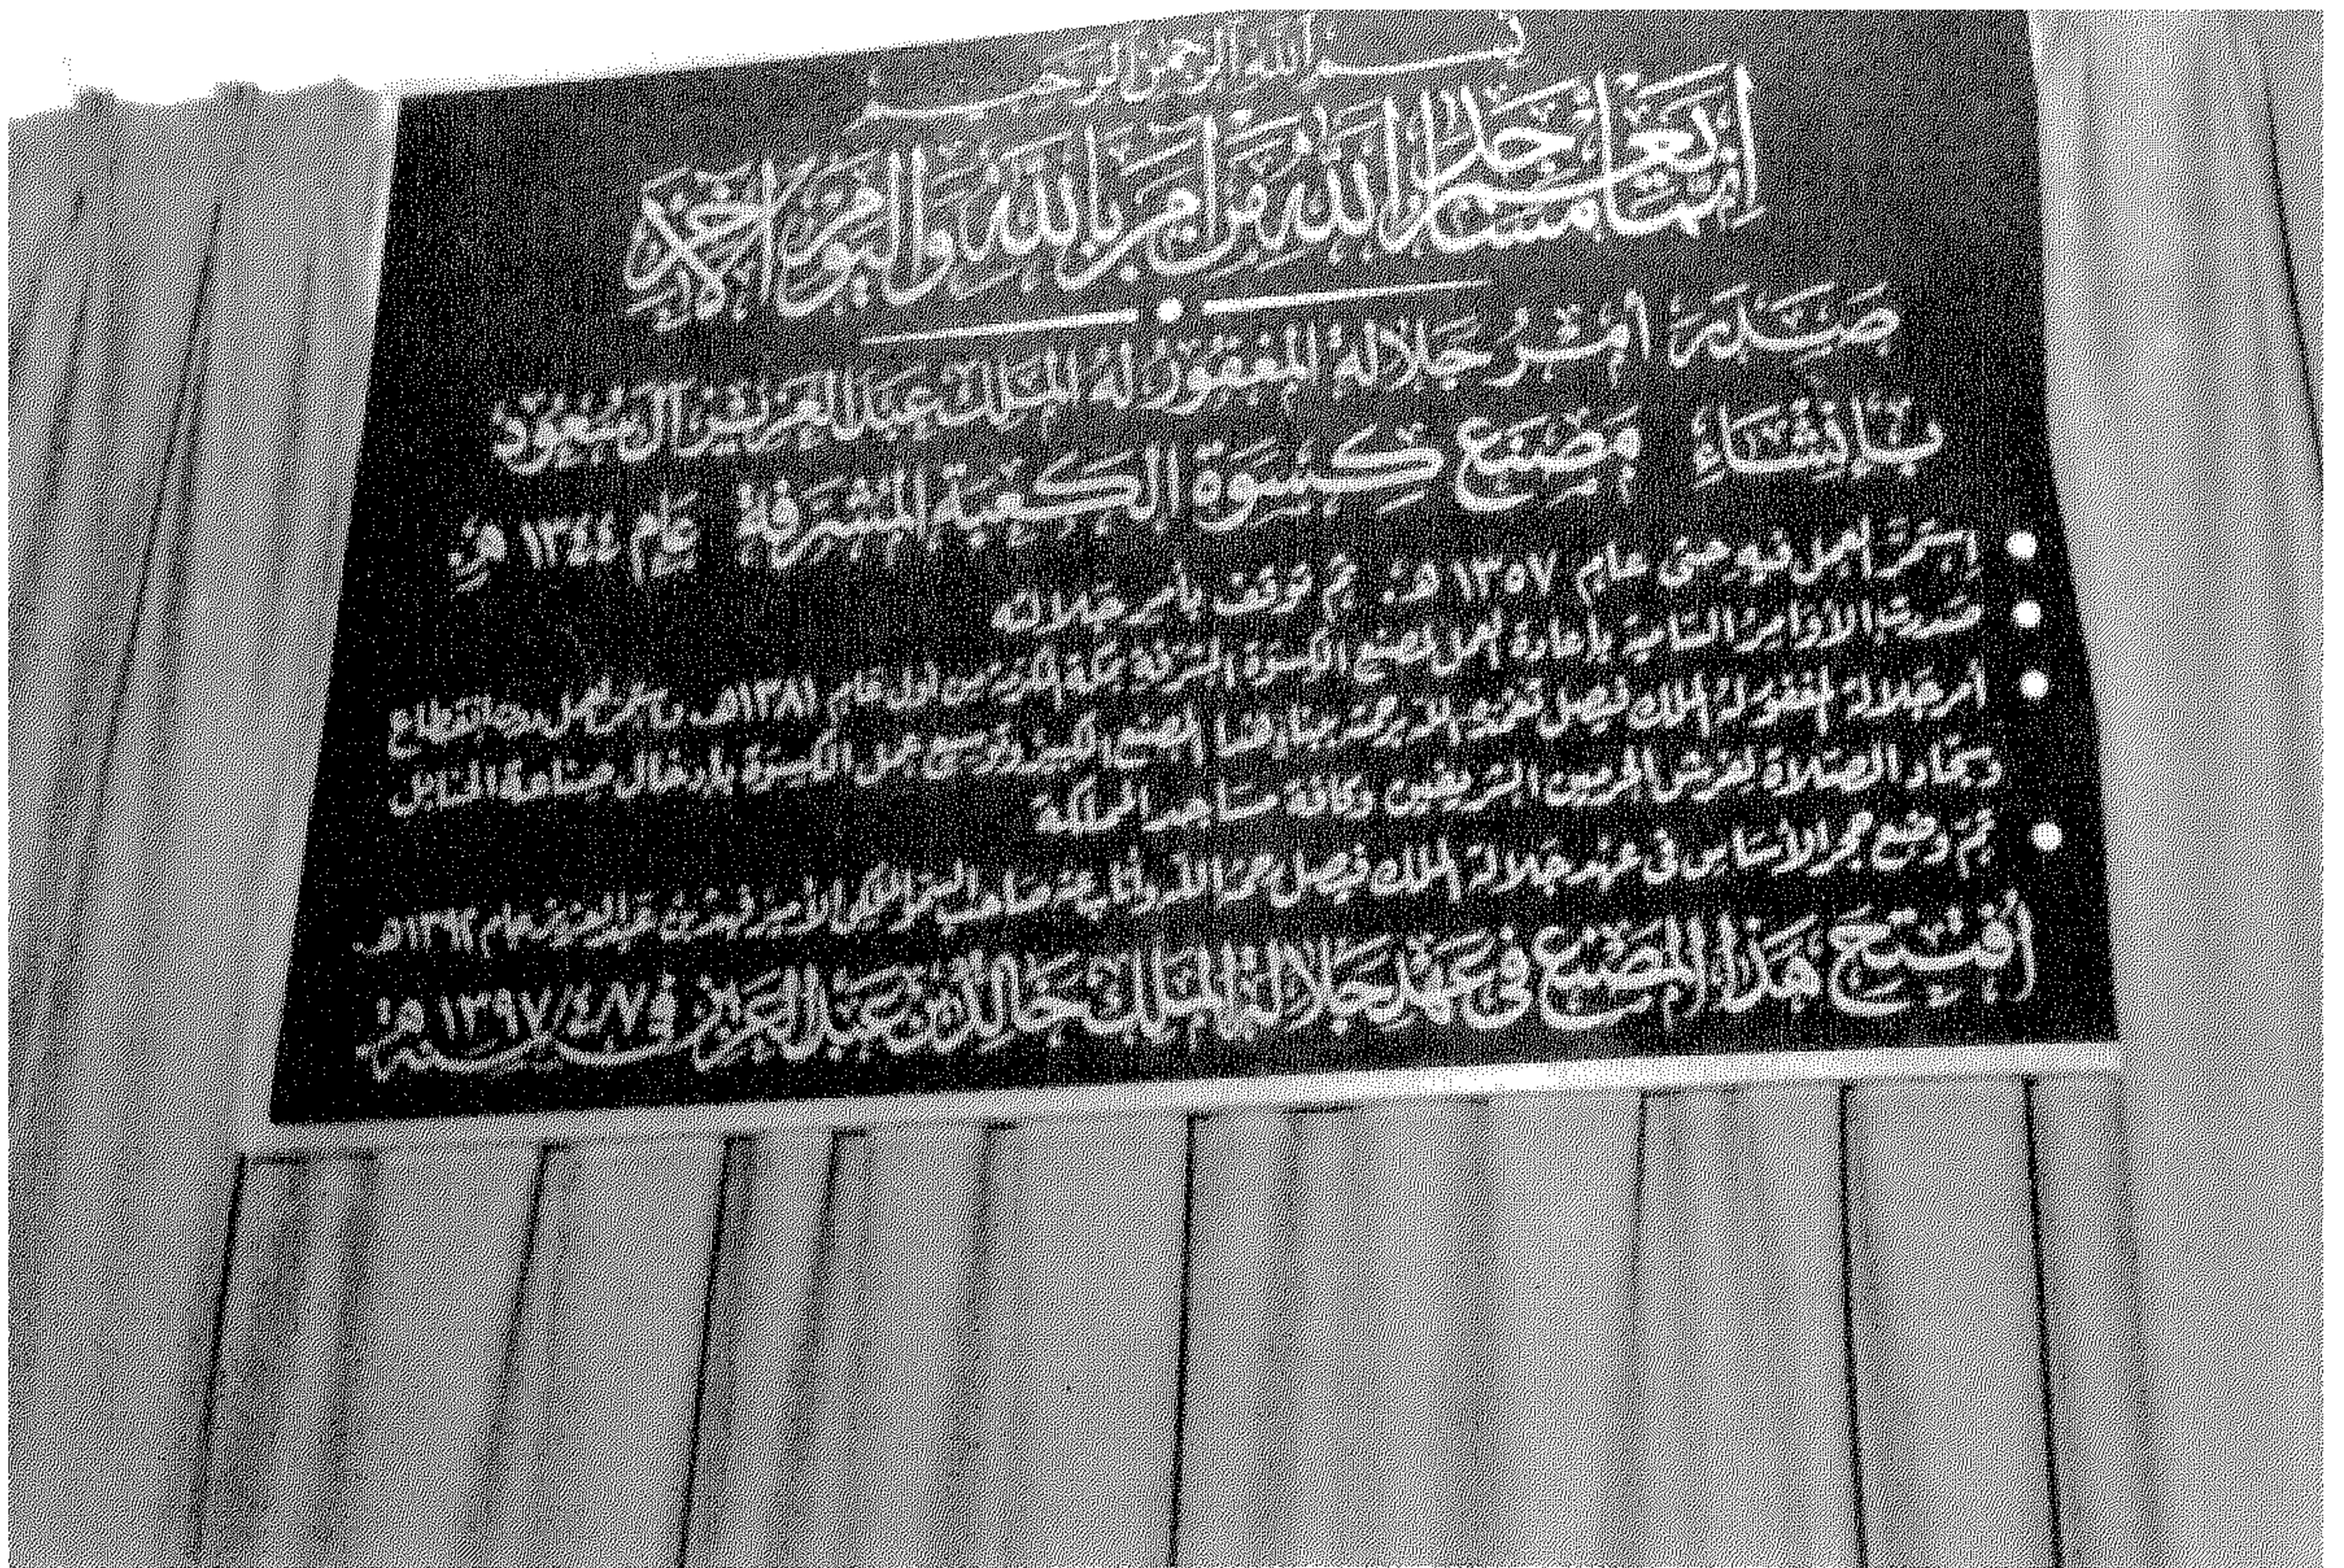 بسم الله الرحمن الرحيم
إنما يعمر مساجد الله من آمن بالله واليوم الآخر
صَدَرَ أمْرُ جَلالة المغفور له الملك عبد العزيز آل سعود
بإنشاء مصنع كسوة الكعبة المشرفة عام ١٣٤٤ هـ
• استمر العمل فيه حتى عام ١٣٥٧ هـ ثم توقف بأمر جلالته
• صدرت الأوامر السامية بإعادة العمل لمصنع الكسوة المشرفة بمكة المكرمة من أول عام ١٣٨١هـ واستمر العمل بدون انقطاع
• أمر جلالة المغفور له الملك فيصل تغمده الله برحمته ببناء هذا المصنع الكبير وتوسيع عمل الكسوة بإدخال صناعة
وسجاد الصلاة لفرش الحرمين الشريفين وكافة مساجد المملكة
• تم وضع حجر الأساس في عهد جلالة الملك فيصل صاحب السمو الملكي الأمير فهد بن عبد العزيز عام هـ
افتتح هذا المصنع في عهد جلالة الملك خالد بن عبد العزيز في سنة ١٣٩٧/٤/٧ هـ